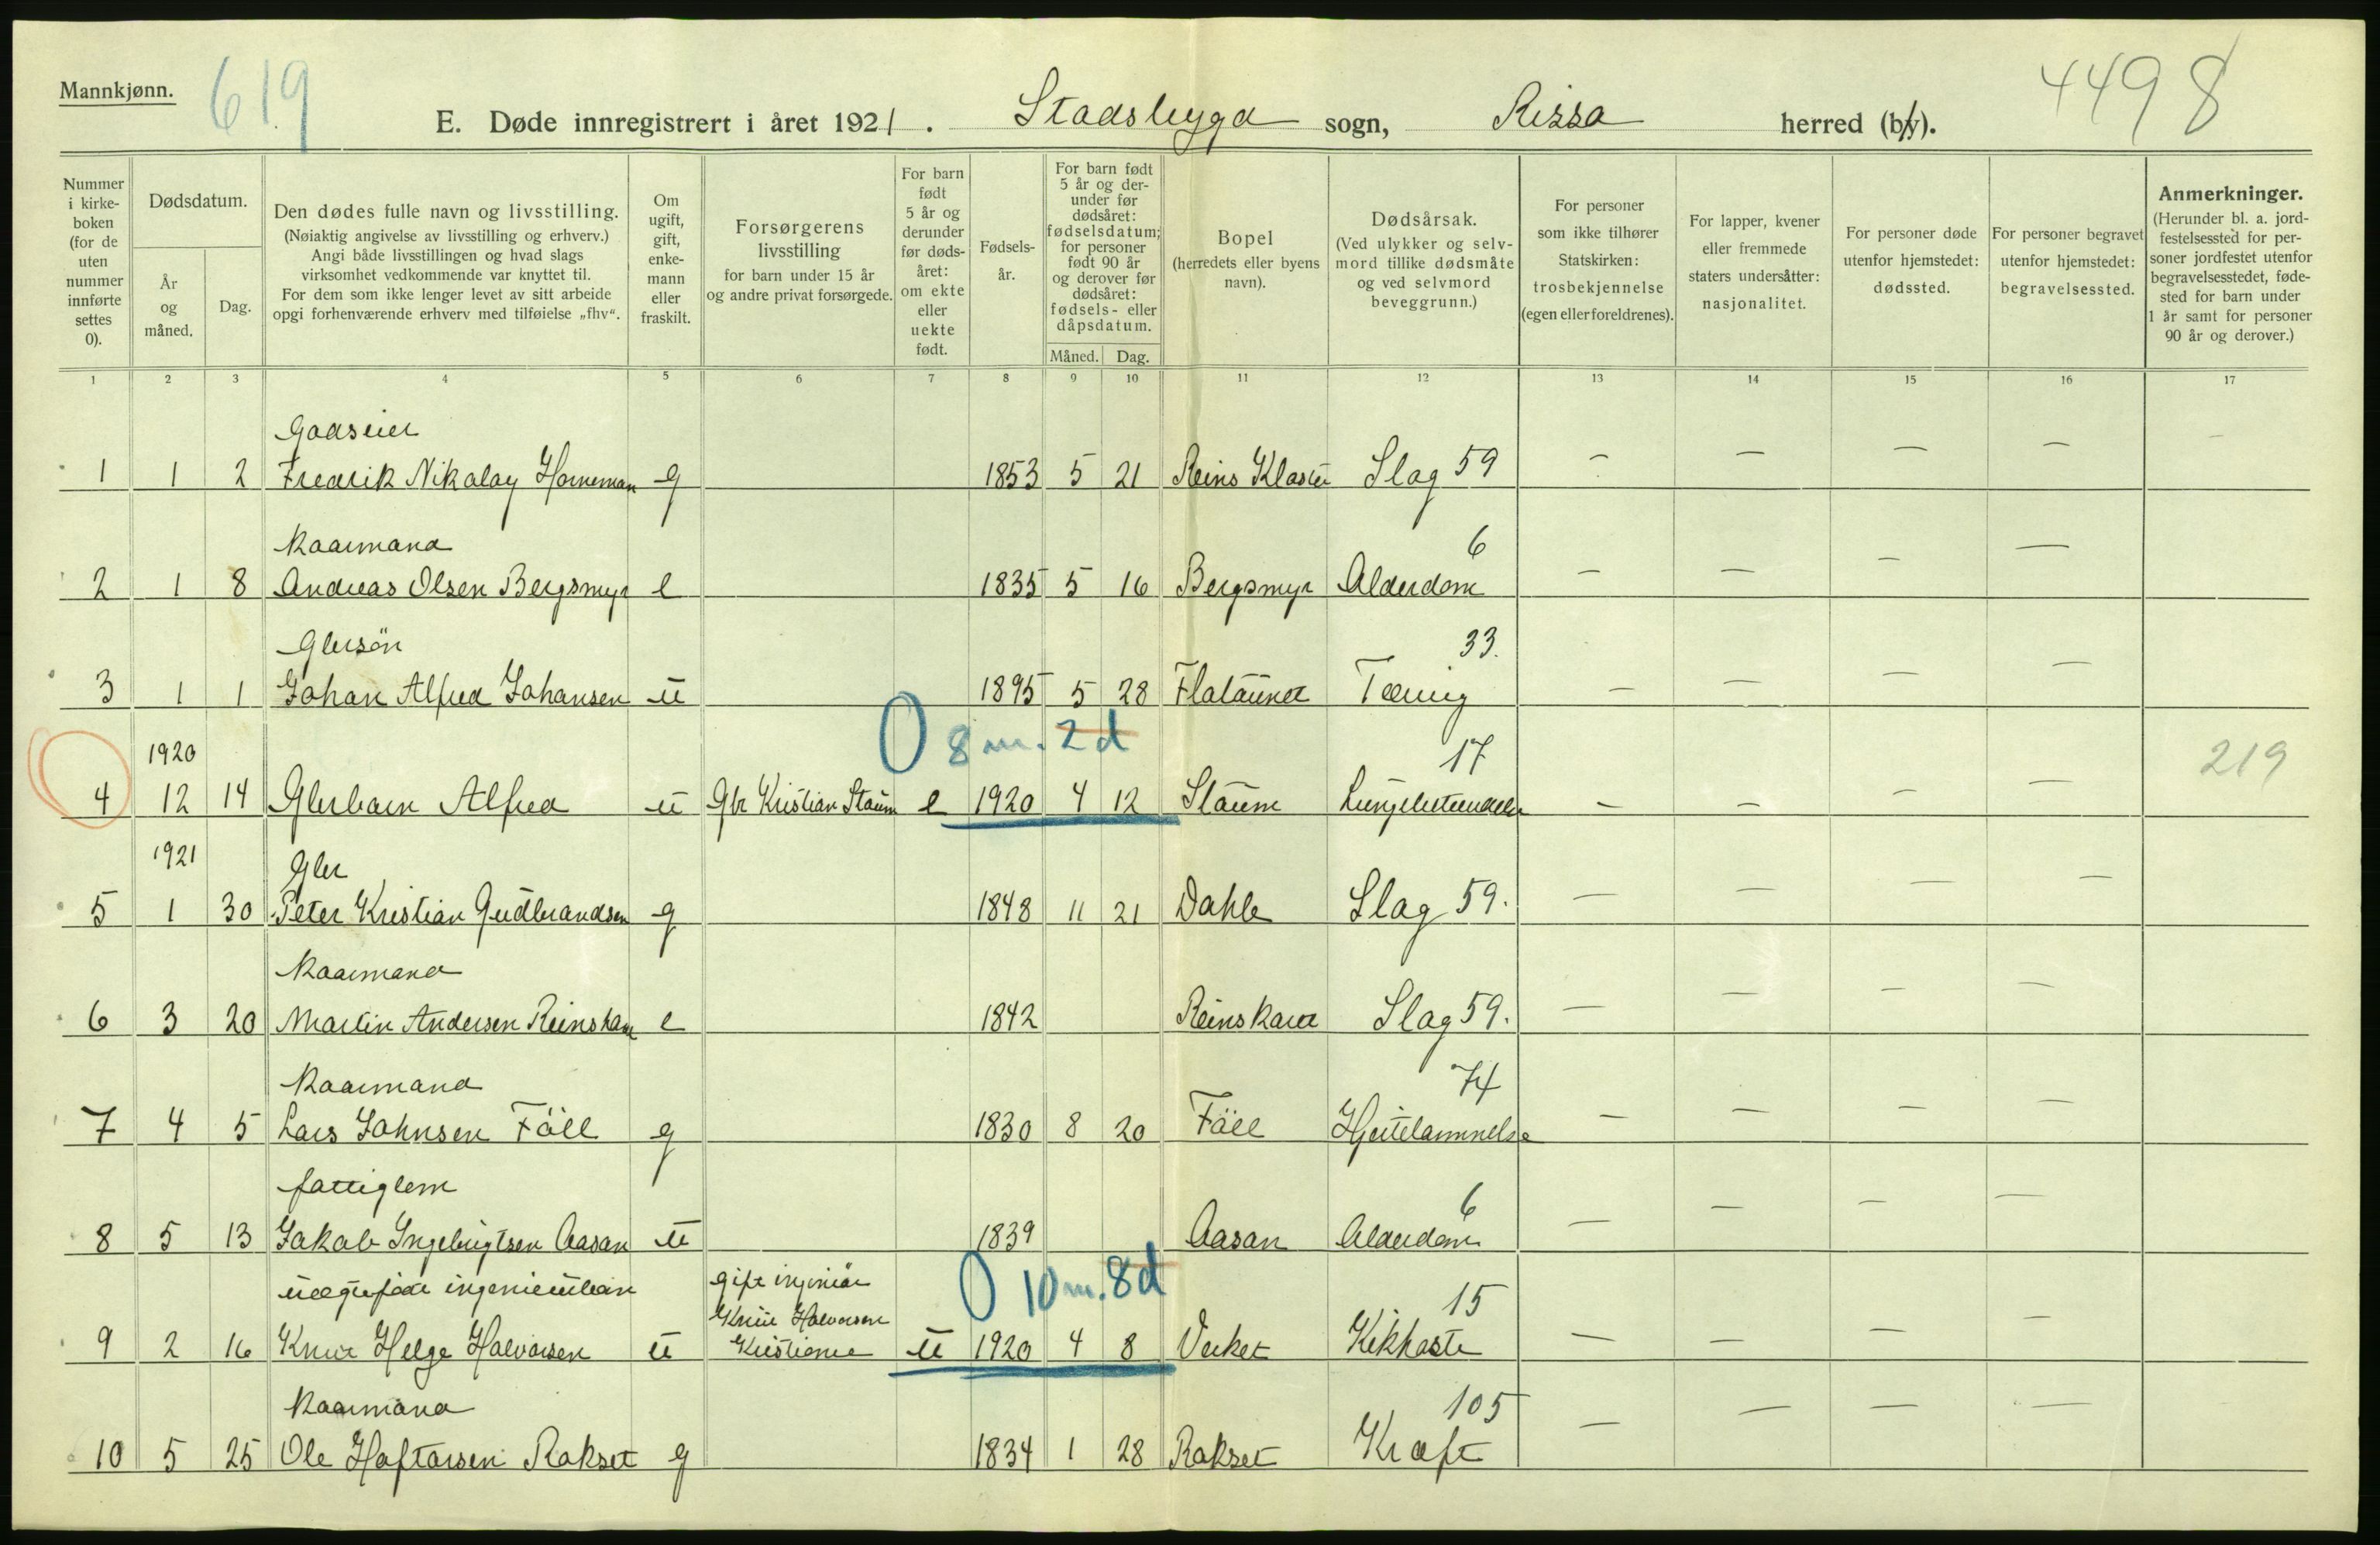 Mannkjønn.
619
E. Døde innregistrert i året 1921. Stadsbygd sogn, Rissa herred (by).
4498
Nummer i kirkeboken (for de uten nummer innførte settes 0).
Dødsdatum.
År og måned.
Dag.
Den dødes fulle navn og livsstilling.
(Nøiaktig angivelse av livsstilling og erhverv.)
Angi både livsstillingen og hvad slags
virksomhet vedkommende var knyttet til.
For dem som ikke lenger levet av sitt arbeide
opgi forhenværende erhverv med tilføielse „fhv“.
Om ugift, gift, enkemann eller fraskilt.
Forsørgerens livsstilling
for barn under 15 år
og andre privat forsørgede.
For barn født 5 år og derunder før dødsåret: om ekte eller uekte født.
Fødselsår.
For barn født 5 år og derunder før dødsåret: fødselsdatum; for personer født 90 år og derover før dødsåret: fødsels- eller dåpsdatum.
Måned. Dag.
Bopel
(herredets eller byens navn).
Dødsårsak.
(Ved ulykker og selvmord tillike dødsmåte og ved selvmord beveggrunn.)
For personer som ikke tilhører Statskirken: trosbekjennelse (egen eller foreldrenes).
For lapper, kvener eller fremmede staters undersåtter: nasjonalitet.
For personer døde utenfor hjemstedet: dødssted.
For personer begravet utenfor hjemstedet: begravelsessted.
Anmerkninger.
(Herunder bl. a. jordfestelsessted for personer jordfestet utenfor begravelsesstedet, fødested for barn under 1 år samt for personer 90 år og derover.)
1 2 3 4 5 6 7 8 9 10 11 12 13 14 15 16 17
Godseier
1 1 2 Fredrik Nikolay Horneman g 1853 5 21 Reins Kloster Slag 59 — — — — —
Kaarmand 6
2 1 8 Andreas Olsen Bergsmyr e 1835 5 16 Bergsmyr Alderdom — — — —
Gbrsön 33.
3 1 1 Johan Alfred Johansen u 1895 5 28 Flataunet Tæring — — — —
0 8 m. 2 d
1920 17 219
4 12 14 Gbrbarn Alfred u Gbr Kristian Staum e 1920 4 12 Staum Lungebetendelse — — — —
1921 Gbr
5 1 30 Peter Kristian Gudbrandsen g 1848 11 21 Dahle Slag 59. — — — —
Kaarmand
6 3 20 Martin Andersen Reinskar e 1842 Reinskard Slag 59. — — — —
Kaarmand 74
7 4 5 Lars Johnsen Föll g 1830 8 20 Föll Hjertelammelse — — — —
fattiglem 6
8 5 13 Jakob Ingebrigtsen Aasan u 1839 Aasan Alderdom — — — —
0 10 m. 8 d
uegtefödt ingeniörbarn gift ingeniör 15
Knut Halvorsen
9 2 16 Knut Helge Halvorsen u Kristiania u 1920 4 8 Verket Kikhoste — — — —
Kaarmand 105
10 5 25 Ole Haftorsen Rokset g 1834 1 28 Rokset Kræft — — — —